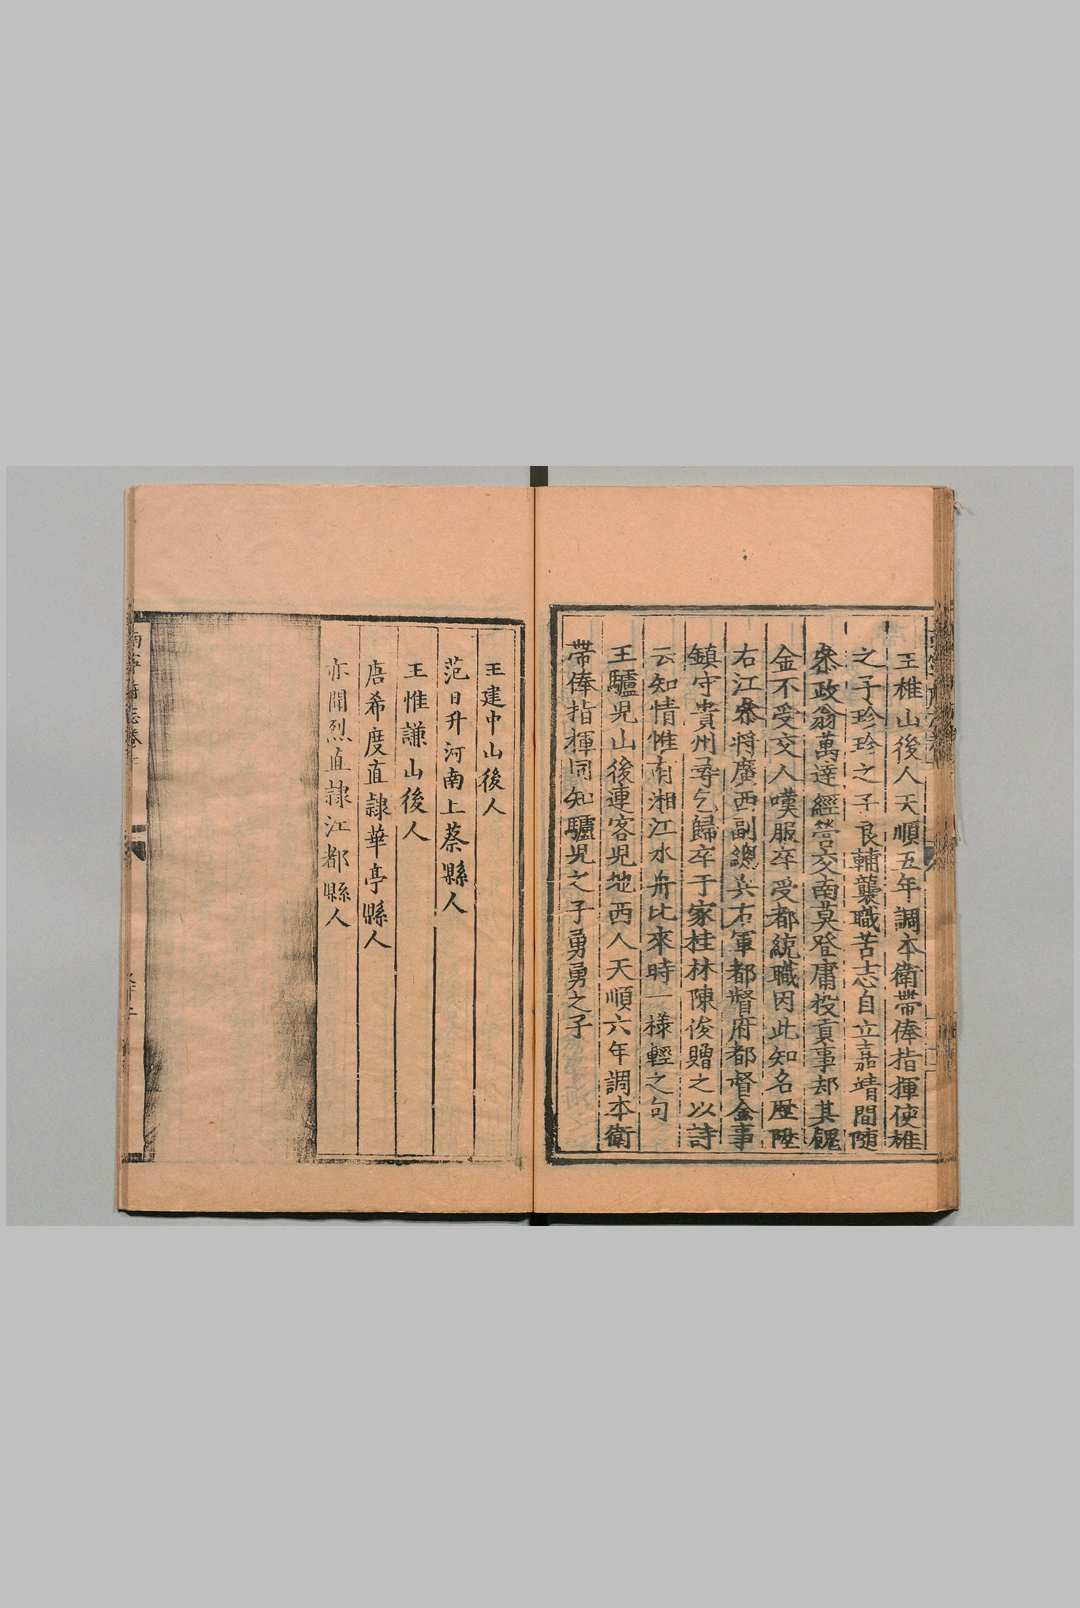 王椎山後人天順五年調本衛帶俸指揮使椎
之子珍珍之子良輔襲職苦志自立嘉靖間隨
叅政翁萬達經營交南莫登庸投貢事却其餽
金不受交人嘆服卒受都統職因此知名歷陞
右江叅將廣西副總兵右軍都督府都督僉事
鎮守貴州尋乞歸卒于家桂林陳俊贈之以詩
云知情惟有湘江水舟比來時一樣輕之句
王驢兒山後連客兒地西人天順六年調本衛
帶俸指揮同知驢兒之子勇勇之子
王建中山後人
范日升河南上蔡縣人
王惟謙山後人
唐希度直隷華亭縣人
亦聞烈直隷江都縣人
南寧府志卷